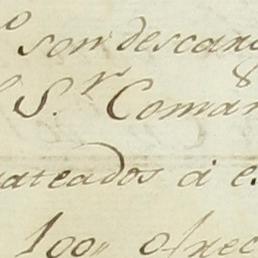 o son descan
S.r Coman
ateados á e
100,, ofrec